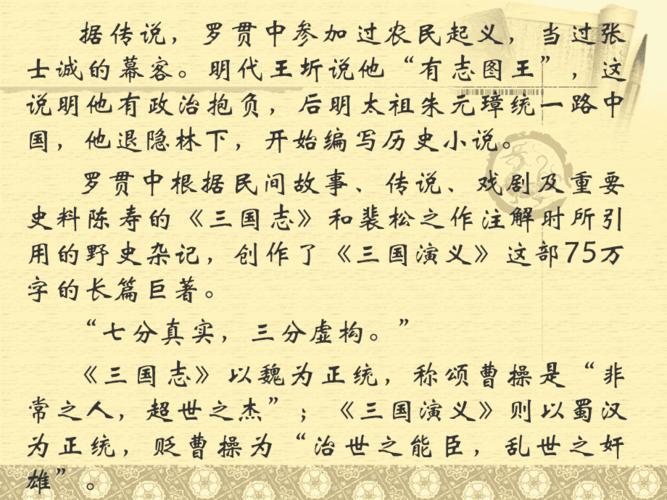 据传说，罗贯中参加过农民起义，当过张
士诚的幕客。明代王圻说他“有志图王”，这
说明他有政治抱负，后明太祖朱元璋统一路中
国，他退隐林下，开始编写历史小说。
罗贯中根据民间故事、传说、戏剧及重要
史料陈寿的《三国志》和裴松之作注解时所引
用的野史杂记，创作了《三国演义》这部75万
字的长篇巨著。
“七分真实，三分虚构。”
《三国志》以魏为正统，称颂曹操是“非
常之人，超世之杰”；《三国演义》则以蜀汉
为正统，贬曹操为“治世之能臣，乱世之奸
雄”。